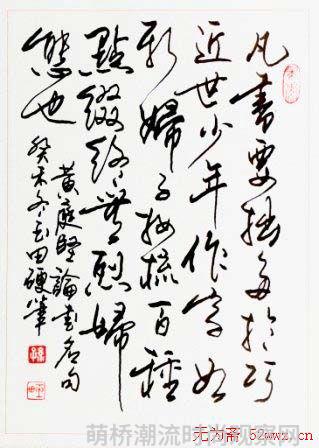 凡書要拙多於巧
近世少年作字如
新婦子妝梳百種
點綴終無烈婦
態也
黃庭堅論書名句
癸未冬玉田硬筆
无为斋 52wwz.cn
萌桥潮流时尚观察网